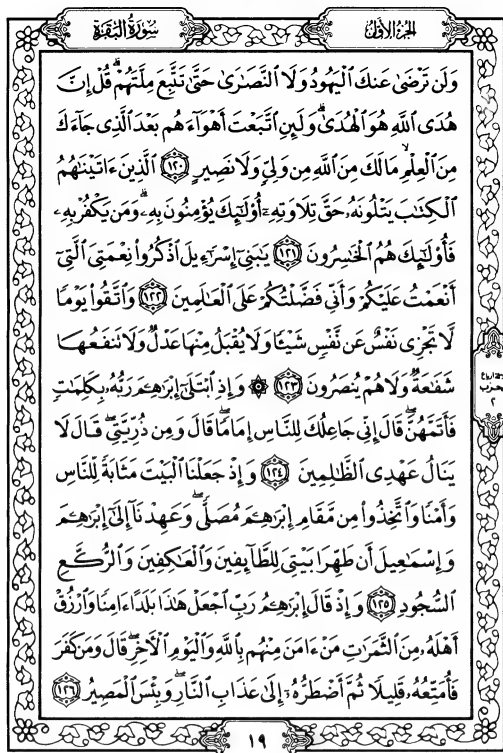 الجزء الأول
سورة البقرة
وَلَن تَرْضَىٰ عَنكَ ٱلْيَهُودُ وَلَا ٱلنَّصَـٰرَىٰ حَتَّىٰ تَتَّبِعَ مِلَّتَهُمْ ۗ قُلْ إِنَّ
هُدَى ٱللَّهِ هُوَ ٱلْهُدَىٰ ۗ وَلَئِنِ ٱتَّبَعْتَ أَهْوَآءَهُم بَعْدَ ٱلَّذِى جَآءَكَ
مِنَ ٱلْعِلْمِ ۙ مَا لَكَ مِنَ ٱللَّهِ مِن وَلِىٍّ وَلَا نَصِيرٍ ﴿١٢٠﴾ ٱلَّذِينَ ءَاتَيْنَـٰهُمُ
ٱلْكِتَـٰبَ يَتْلُونَهُۥ حَقَّ تِلَاوَتِهِۦٓ أُو۟لَـٰٓئِكَ يُؤْمِنُونَ بِهِۦ ۗ وَمَن يَكْفُرْ بِهِۦ
فَأُو۟لَـٰٓئِكَ هُمُ ٱلْخَـٰسِرُونَ ﴿١٢١﴾ يَـٰبَنِىٓ إِسْرَٰٓءِيلَ ٱذْكُرُوا۟ نِعْمَتِىَ ٱلَّتِىٓ
أَنْعَمْتُ عَلَيْكُمْ وَأَنِّى فَضَّلْتُكُمْ عَلَى ٱلْعَـٰلَمِينَ ﴿١٢٢﴾ وَٱتَّقُوا۟ يَوْمًا
لَّا تَجْزِى نَفْسٌ عَن نَّفْسٍ شَيْـًٔا وَلَا يُقْبَلُ مِنْهَا عَدْلٌ وَلَا تَنفَعُهَا
شَفَـٰعَةٌ وَلَا هُمْ يُنصَرُونَ ﴿١٢٣﴾ ۞ وَإِذِ ٱبْتَلَىٰٓ إِبْرَٰهِـۧمَ رَبُّهُۥ بِكَلِمَـٰتٍ
فَأَتَمَّهُنَّ ۖ قَالَ إِنِّى جَاعِلُكَ لِلنَّاسِ إِمَامًا ۖ قَالَ وَمِن ذُرِّيَّتِى ۖ قَالَ لَا
يَنَالُ عَهْدِى ٱلظَّـٰلِمِينَ ﴿١٢٤﴾ وَإِذْ جَعَلْنَا ٱلْبَيْتَ مَثَابَةً لِّلنَّاسِ
وَأَمْنًا وَٱتَّخِذُوا۟ مِن مَّقَامِ إِبْرَٰهِـۧمَ مُصَلًّى ۖ وَعَهِدْنَآ إِلَىٰٓ إِبْرَٰهِـۧمَ
وَإِسْمَـٰعِيلَ أَن طَهِّرَا بَيْتِىَ لِلطَّآئِفِينَ وَٱلْعَـٰكِفِينَ وَٱلرُّكَّعِ
ٱلسُّجُودِ ﴿١٢٥﴾ وَإِذْ قَالَ إِبْرَٰهِـۧمُ رَبِّ ٱجْعَلْ هَـٰذَا بَلَدًا ءَامِنًا وَٱرْزُقْ
أَهْلَهُۥ مِنَ ٱلثَّمَرَٰتِ مَنْ ءَامَنَ مِنْهُم بِٱللَّهِ وَٱلْيَوْمِ ٱلْـَٔاخِرِ ۖ قَالَ وَمَن كَفَرَ
فَأُمَتِّعُهُۥ قَلِيلًا ثُمَّ أَضْطَرُّهُۥٓ إِلَىٰ عَذَابِ ٱلنَّارِ ۖ وَبِئْسَ ٱلْمَصِيرُ ﴿١٢٦﴾
١٩